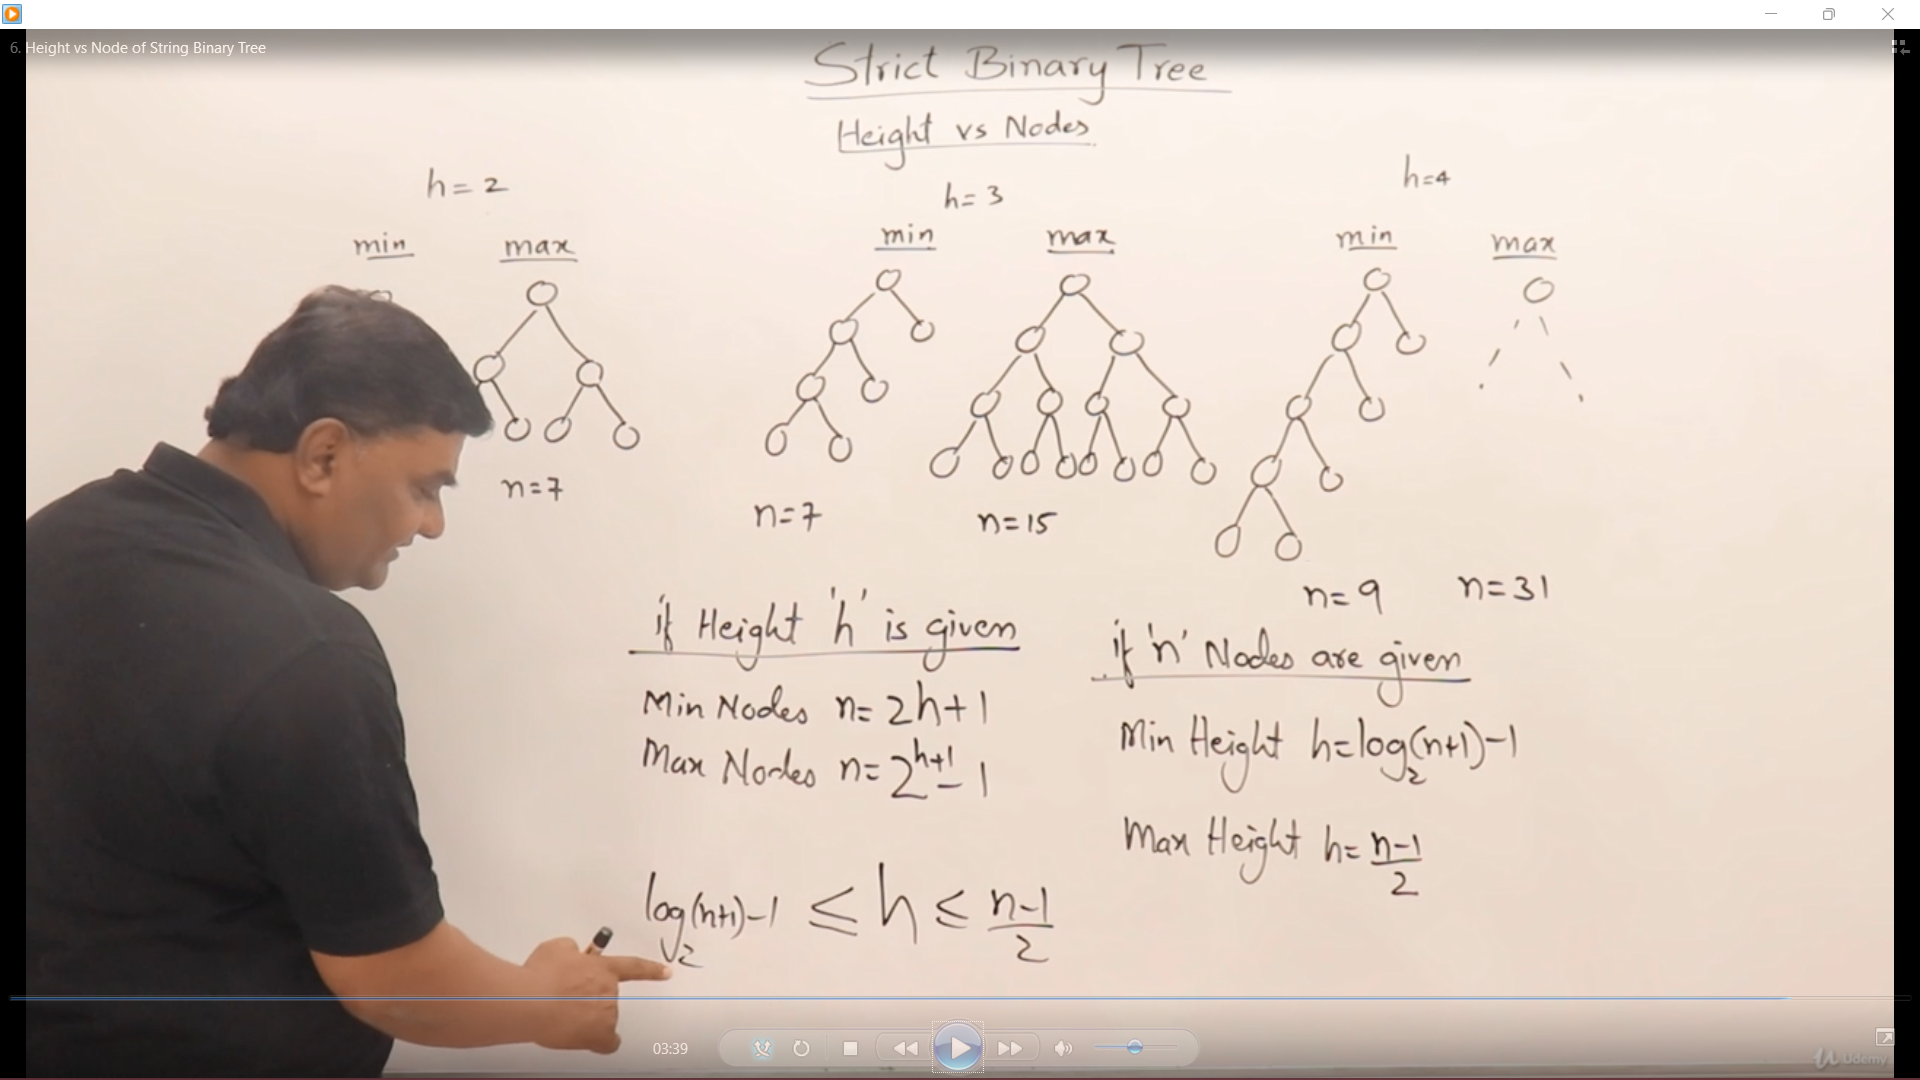 6. Height vs Node of String Binary Tree
Strict Binary Tree
Height vs Nodes
h=2
min max
n=7
h=3
min max
n=7 n=15
h=4
min max
n=9 n=31
if Height 'h' is given
Min Nodes n=2h+1
Max Nodes n=2^{h+1}-1
if 'n' Nodes are given
Min Height h=log₂(n+1)-1
Max Height h=\frac{n-1}{2}
log₂(n+1)-1 ≤ h ≤ \frac{n-1}{2}
03:39
Udemy